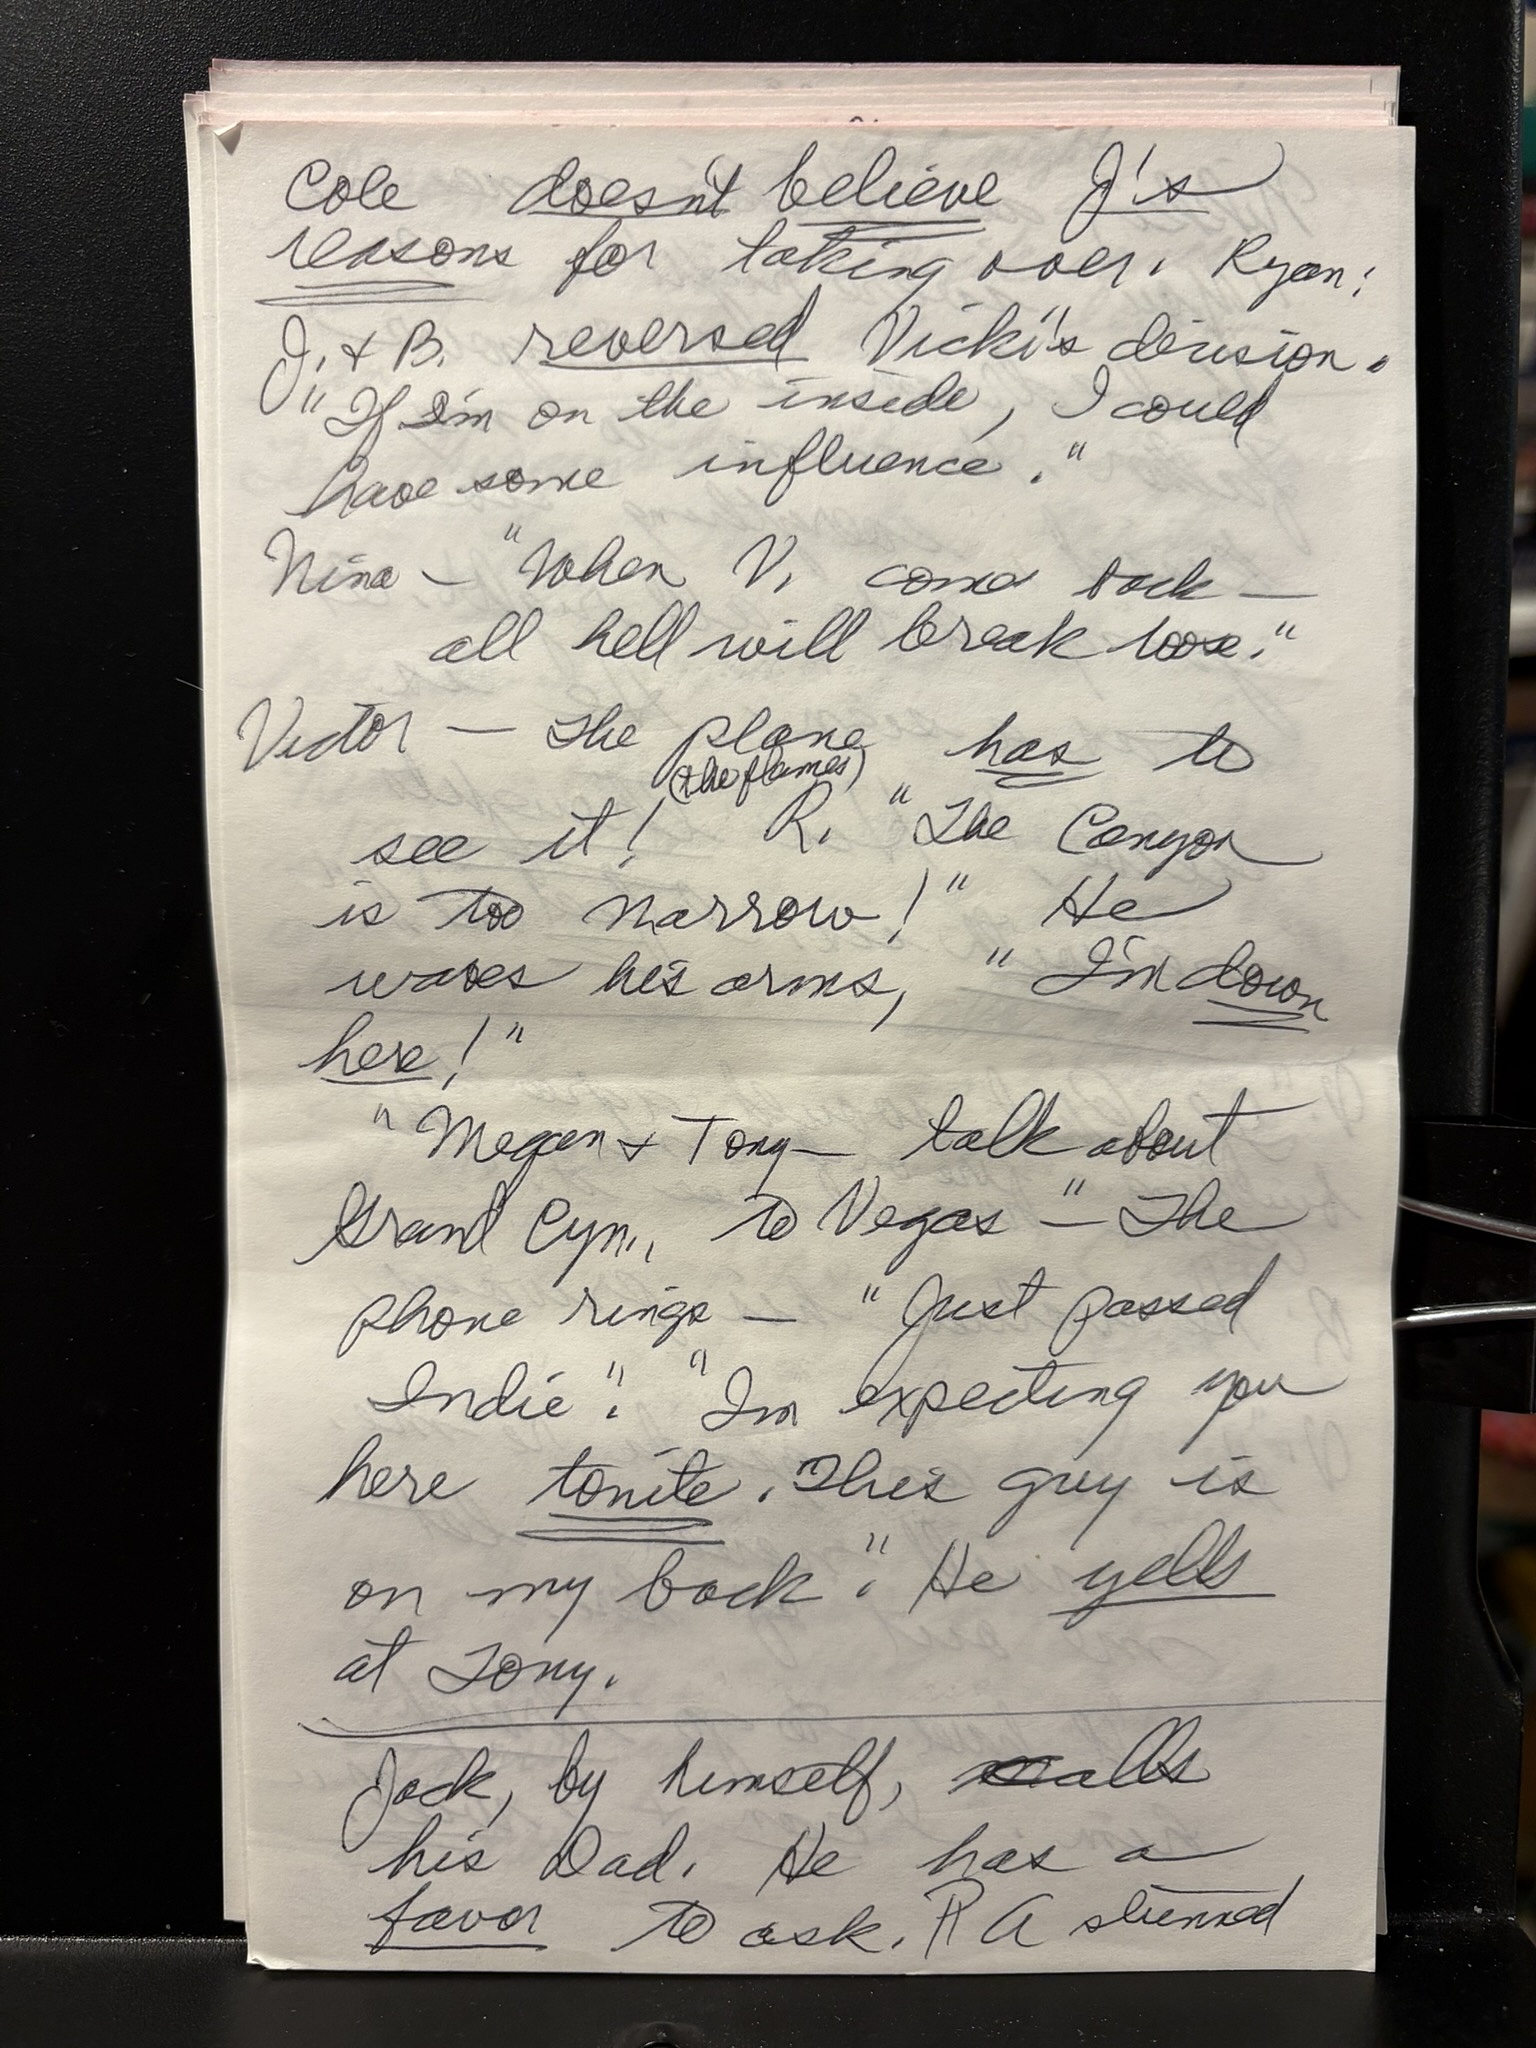 Cole doesn't believe J's
reasons for taking over. Ryan:
J. & B. reversed Vicki's decision.
"If I'm on the inside, I could
have some influence."
Nina - "When V. comes back -
all hell will break loose."
Victor - The plane has to
(the flames)
see it! R. "The Canyon
is too narrow!" He
waves his arms, "I'm down
here!"
"Megan & Tony - talk about
Grand Cyn., to Vegas" - The
phone rings - "Just passed
Indie". "I'm expecting you
here tonite. This guy is
on my back". He yells
at Tony.
Jack, by himself, calls
his Dad. He has a
favor to ask. P A stunned